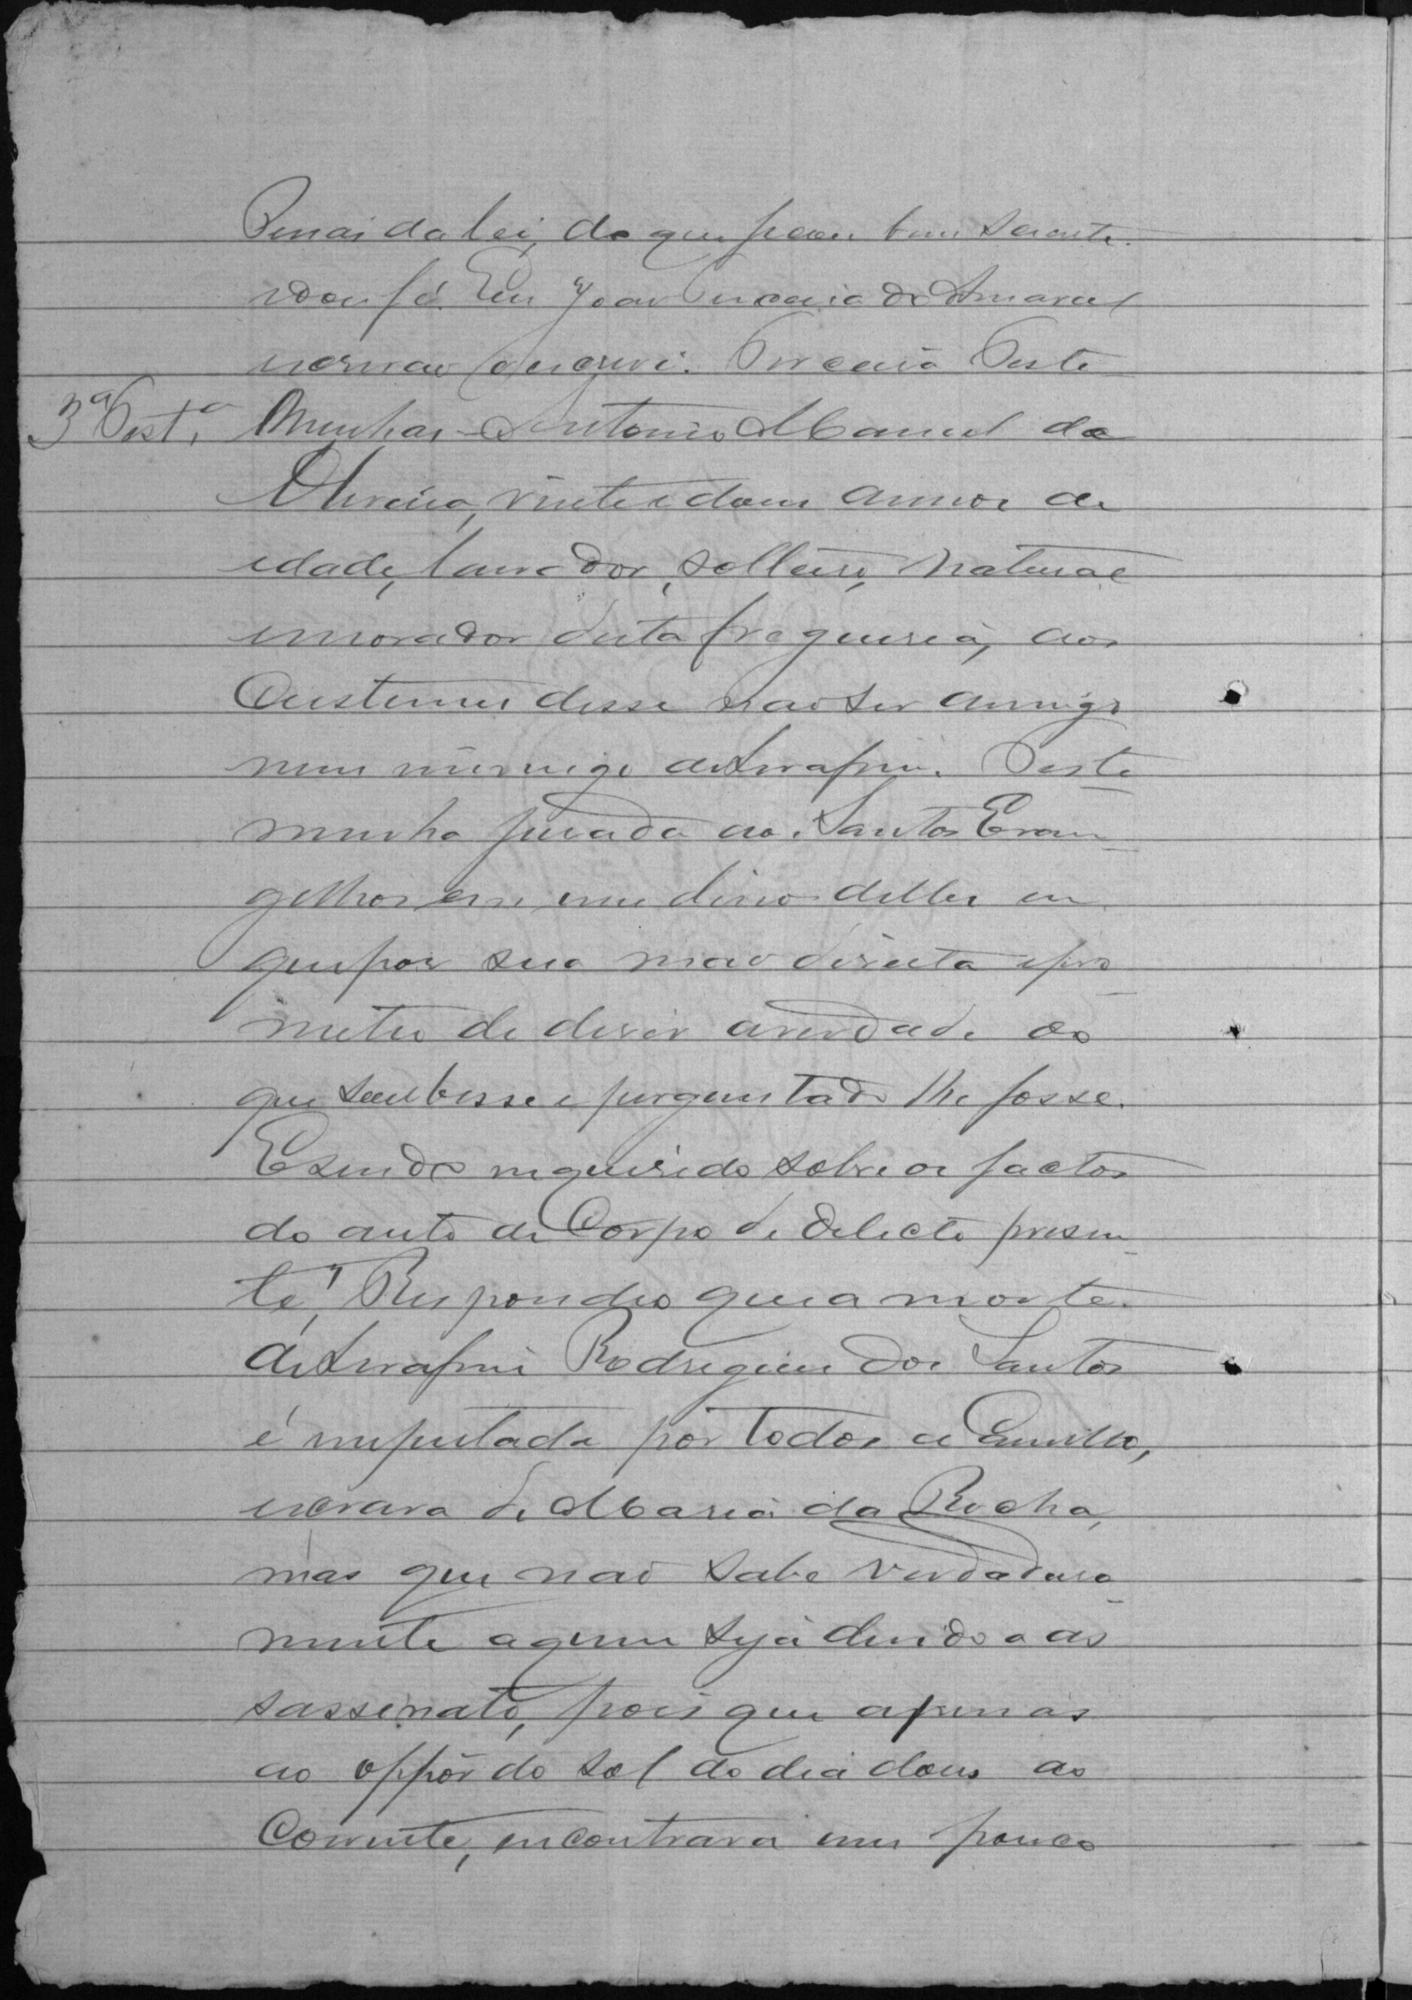 Penas da lei, do que ficou bem sciente.
e dou fé. Eu João do Amaral
escrivão escrevi. Terceira Teste
3ª Testª. Munha Antonio Manoel de
Oliveira, vinte e dous annos de
idade, lavrador, solteiro, natural
e morador desta freguesia, aos
Custumes disse não ser amigo
nem inimigo de Serafim. Teste
munha jurada aos Santos Evan
gelhos em um livro delles em
que pos sua mão direita e pro
metteo de diser a verdade do
que soubesse e perguntado lhe fosse.
E sendo inquirido sobre os factos
do auto de Corpo de delicto presen
te, Respondeo que a morte
de Serafim Rodrigues dos Santos
é imputada por todos a
escrava de Maria da Rocha,
mas que não sabe verdadeira
mente a quem seja devido o as
sassinato, pois que apenas
ao oppôr do sol do dia dous do
Corrente, encontrara um pouco